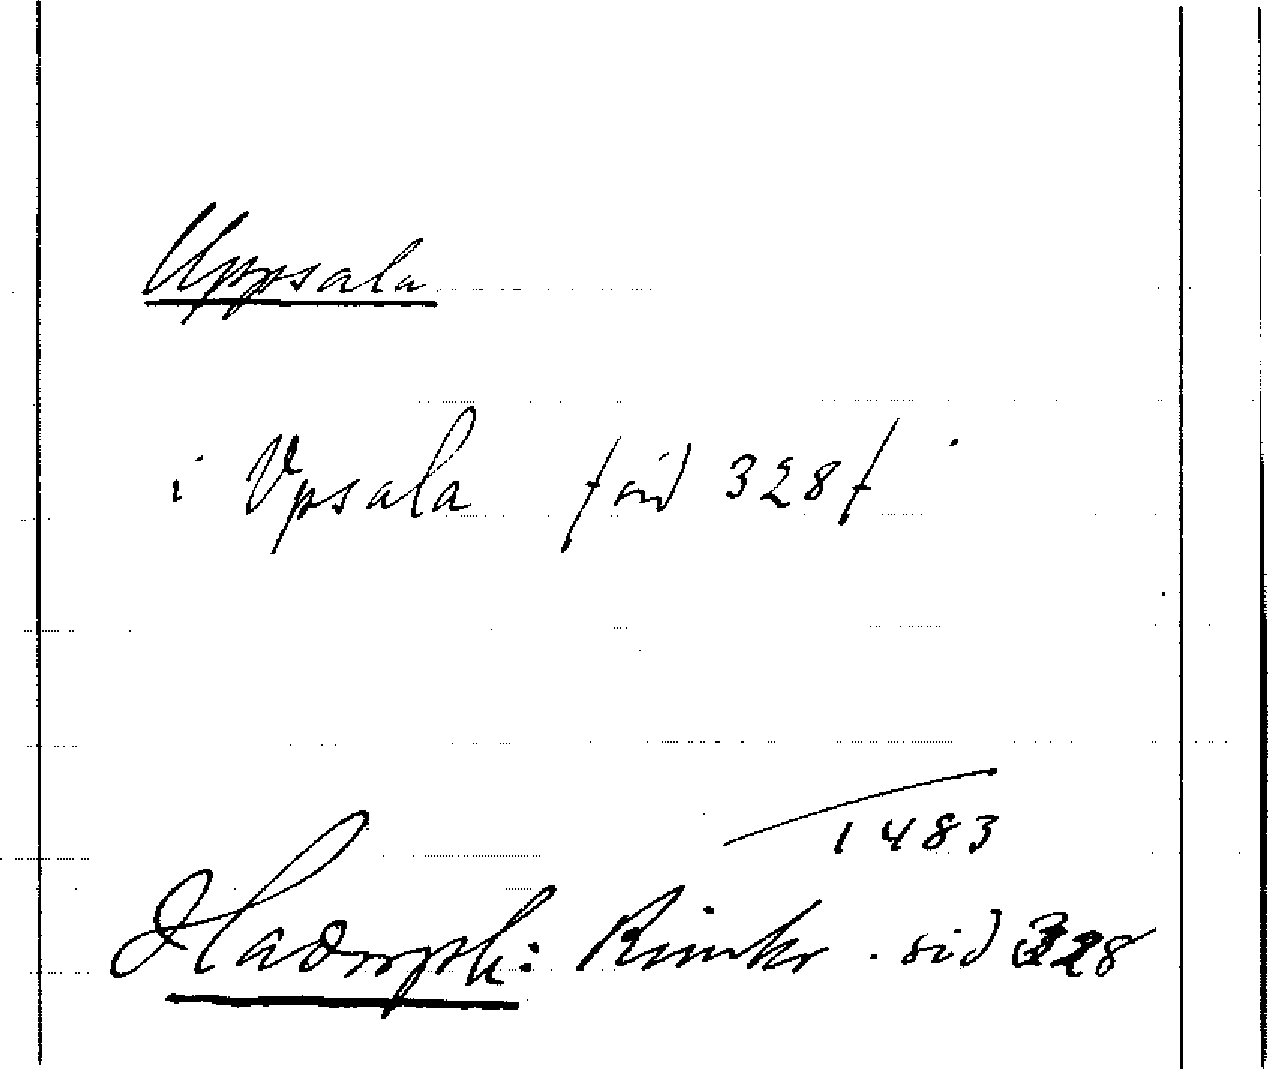 Uppsala
i Vpsala /sid 328/.
1483
Hadorph: Rimkr. sid 328